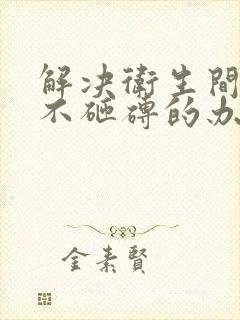 解决衛生間
不砸磚的办
金素賢